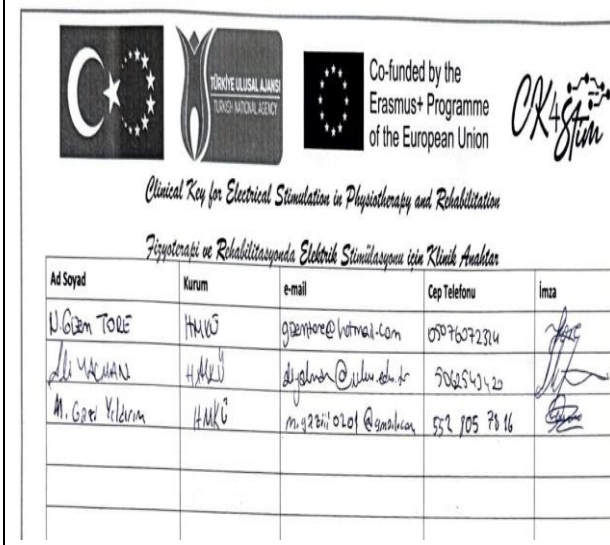 TÜRKİYE ULUSAL AJANSI
TURKISH NATIONAL AGENCY
Co-funded by the
Erasmus+ Programme
of the European Union
CK4Stim
Clinical Key for Electrical Stimulation in Physiotherapy and Rehabilitation
Fizyoterapi ve Rehabilitasyonda Elektrik Stimülasyonu için Klinik Anahtar
Ad Soyad Kurum e-mail Cep Telefonu İmza
N. Gizem TORE HMKÜ
Ali YALMAN HMKÜ
M. Gazi Yıldırım HMKÜ 552 805 78 16